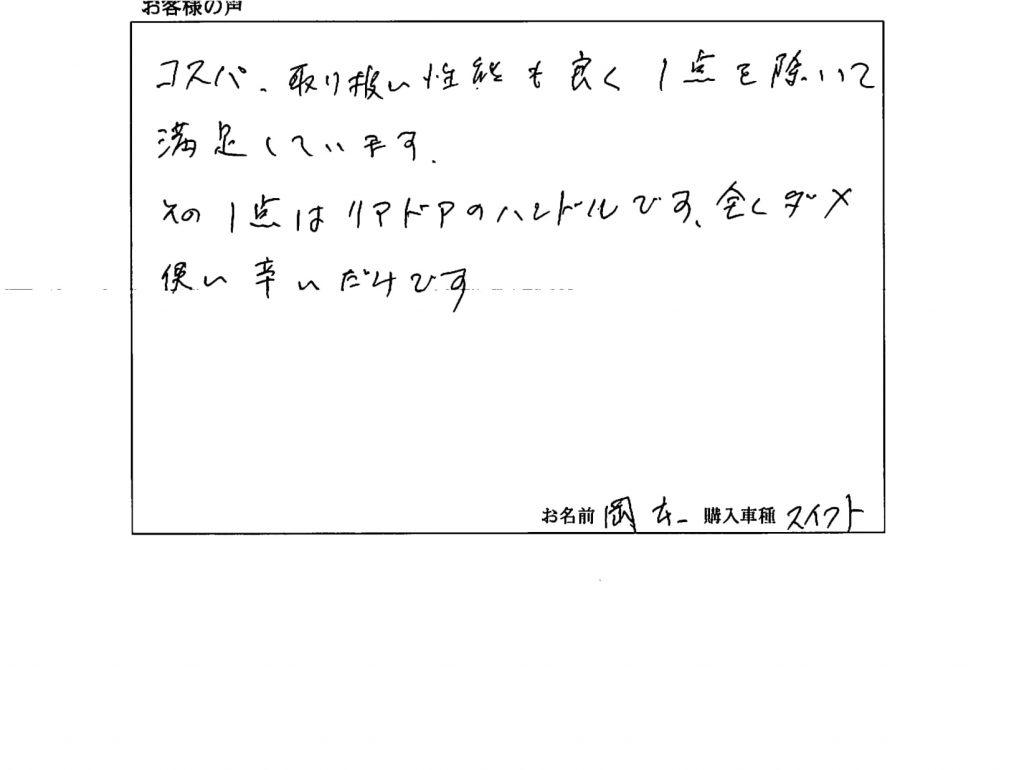 お客様の声
コスパ、取り扱い性能も良く 1点を除いて
満足しています.
その1点はリアドアのハンドルです、全くダメ
使い辛いだけです
お名前 岡 購入車種 スイフト